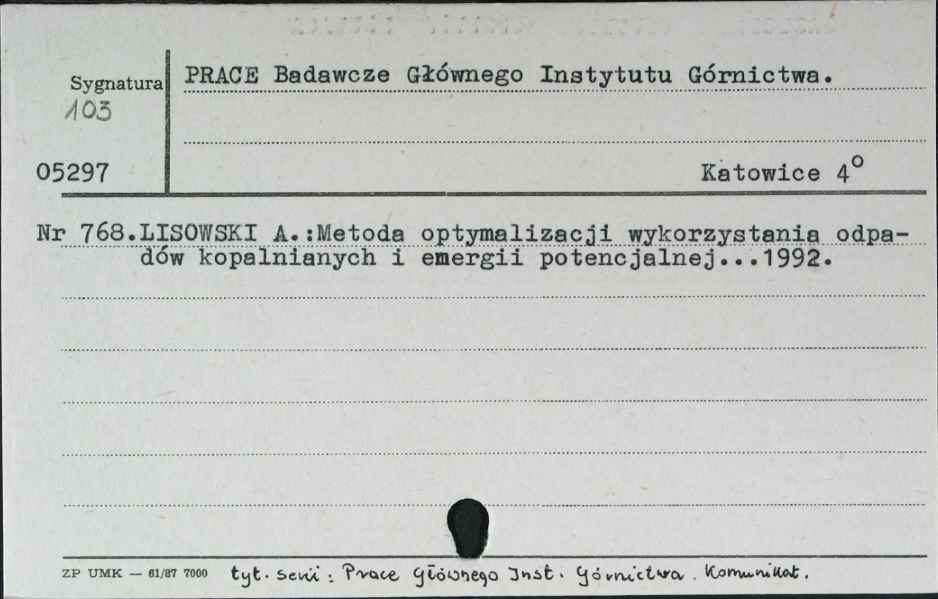 Sygnatura
103
05297
PRACE Badawcze Głównego Instytutu Górnictwa.
Katowice 4°
Nr 768.LISOWSKI A.:Metoda optymalizacji wykorzystania odpa-
dów kopalnianych i emergii potencjalnej...1992.
ZP UMK — 61/87 7000
tyt. serii : Prace Głównego Inst. Górnictwa. Komunikat.